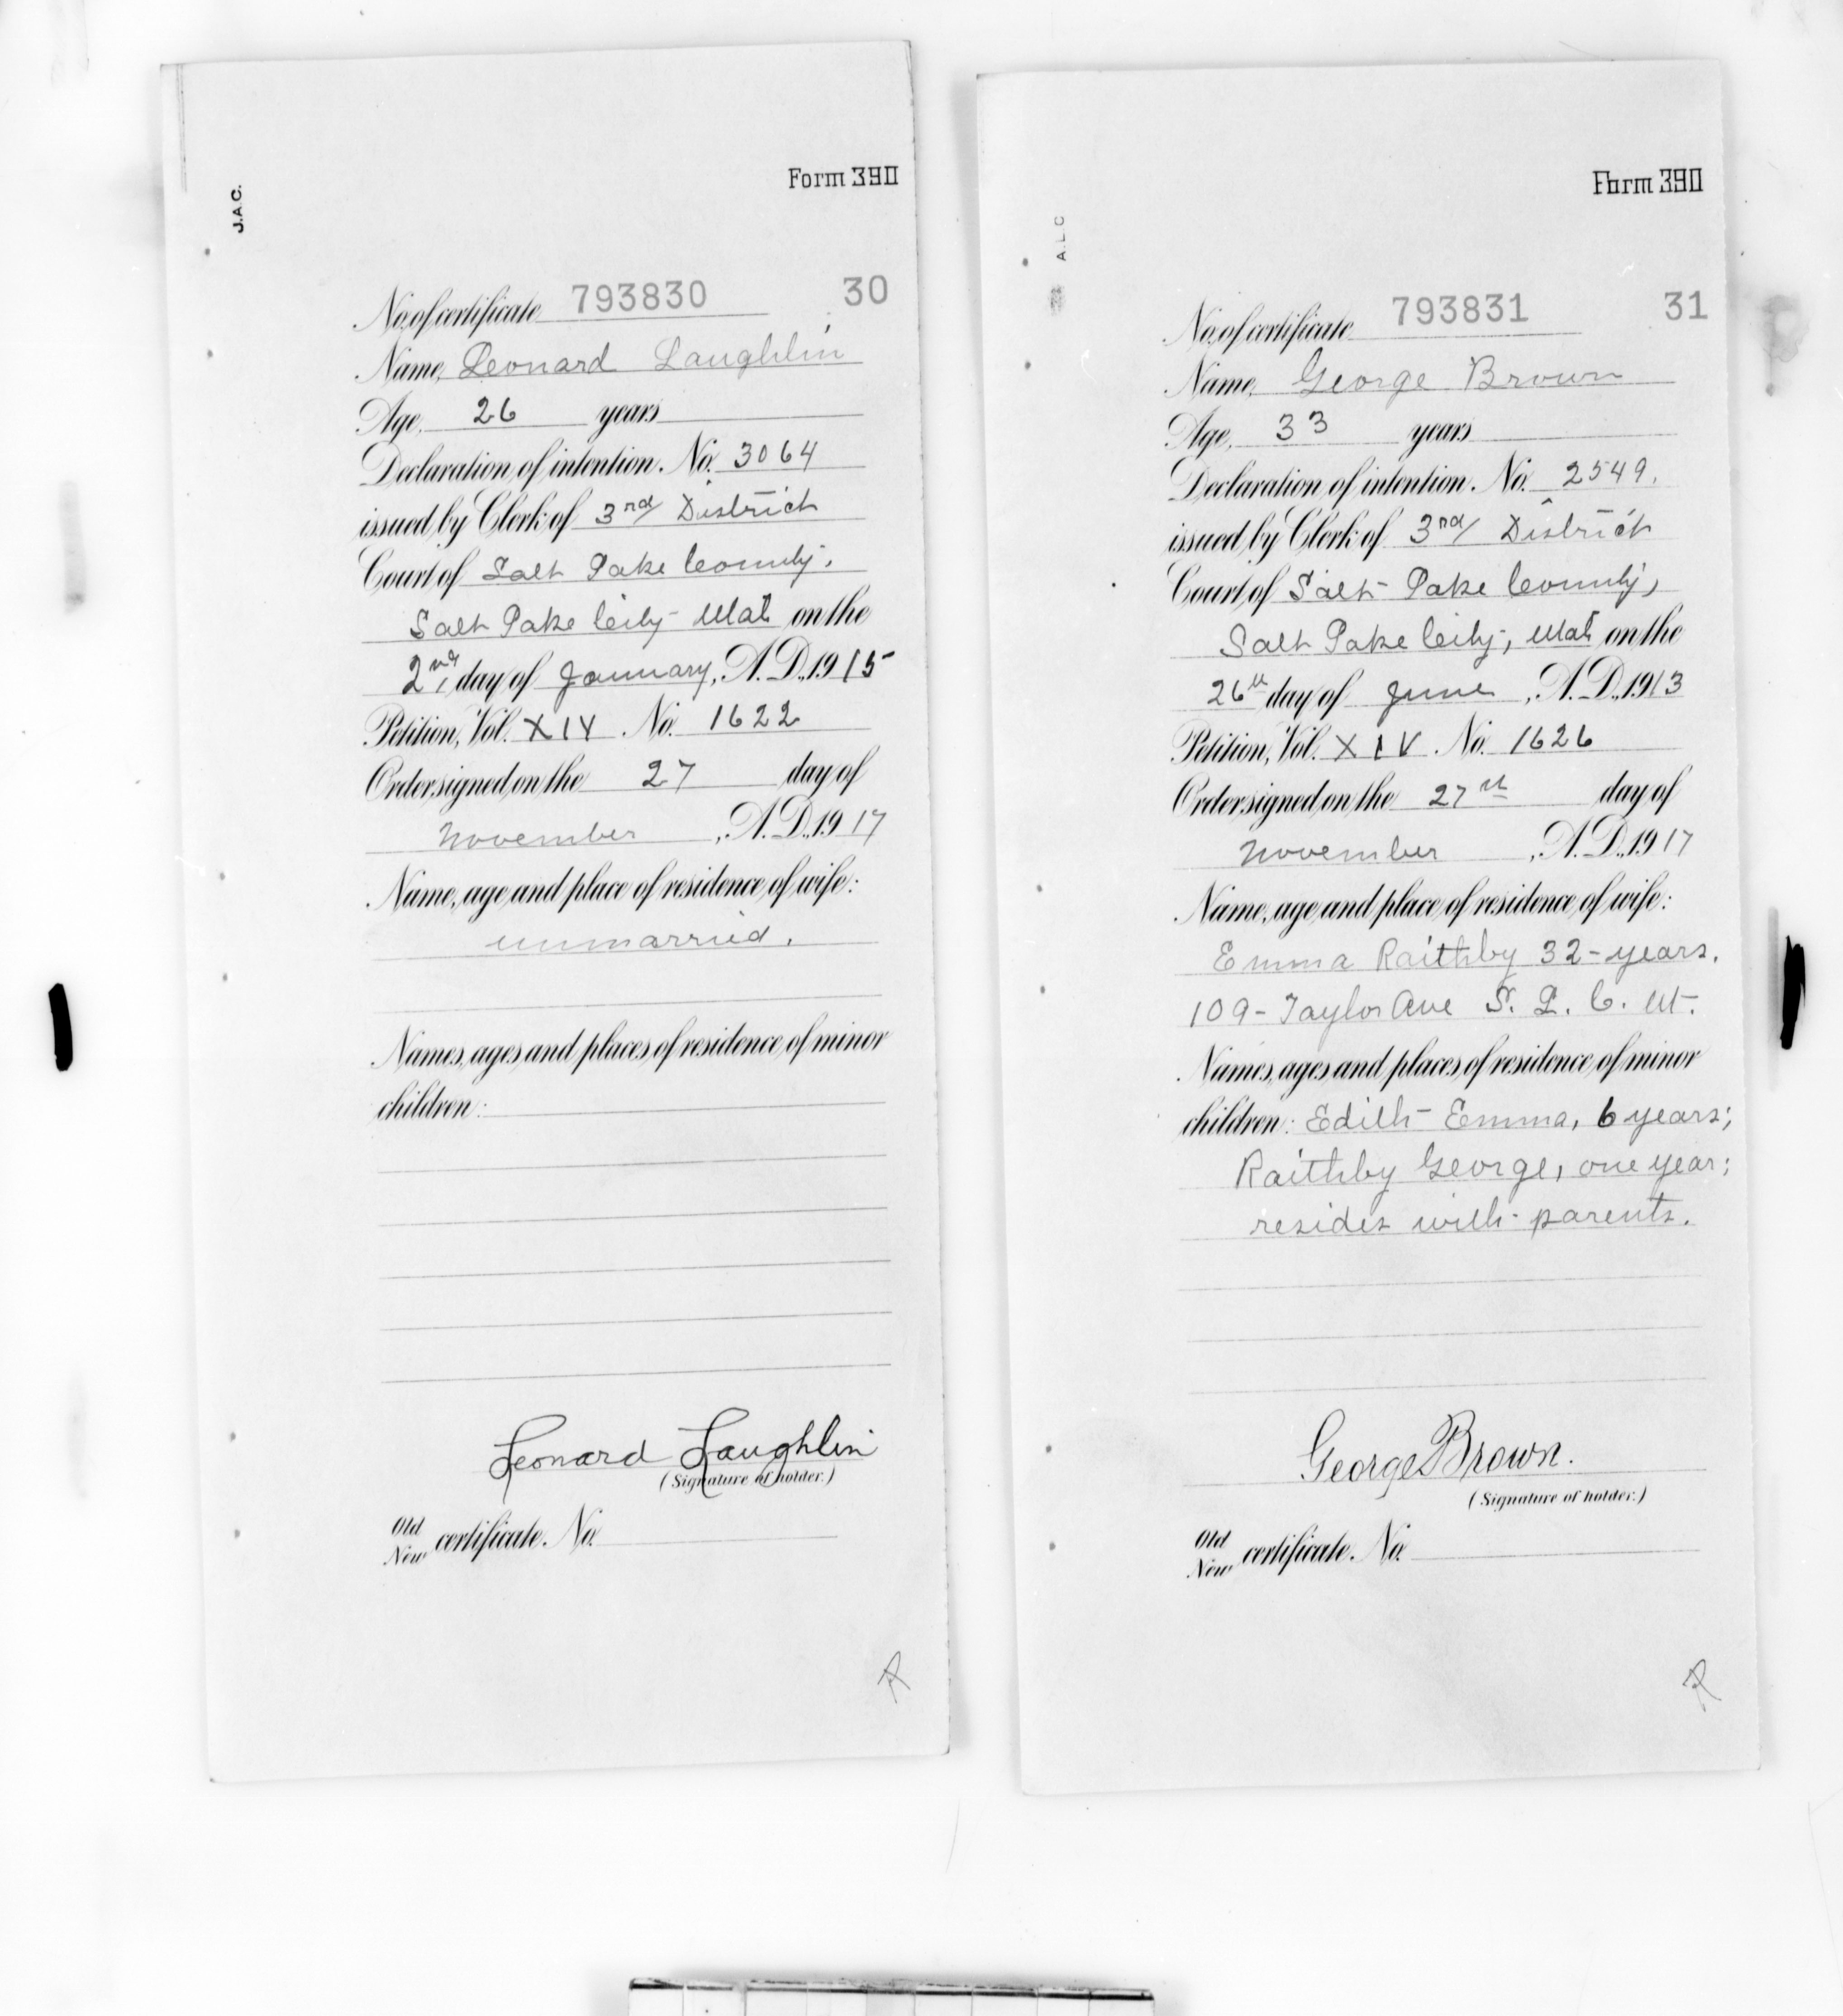 J.A.C.
Form 390
No. of certificate 793830 30
Name, Leonard Laughlin
Age, 26 years
Declaration of intention. No. 3064
issued by Clerk of 3rd District
Court of Salt Lake County,
Salt Lake City Utah on the
2nd day of January, A.D., 1915
Petition, Vol. XIV No. 1622
Order signed on the 27 day of
November, A.D., 1917
Name, age and place of residence of wife:
unmarried.
Names, ages and places of residence of minor
children:
Leonard Laughlin
(Signature of holder.)
Old
New certificate. No.
R
A.L.C
Form 390
No. of certificate 793831 31
Name, George Brown
Age, 33 years
Declaration of intention. No. 2549.
issued by Clerk of 3rd District
Court of Salt Lake County,
Salt Lake City, Utah on the
26th day of June, A.D., 1913
Petition, Vol. XIV. No. 1626
Order signed on the 27th day of
November, A.D., 1917
Name, age and place of residence of wife:
Emma Raithby 32-years.
109-Taylor Ave S. L. C. Ut.
Names, ages and places of residence of minor
children: Edith Emma, 6 years;
Raithby George, one year;
resides with parents.
George Brown.
(Signature of holder.)
Old
New certificate. No.
R